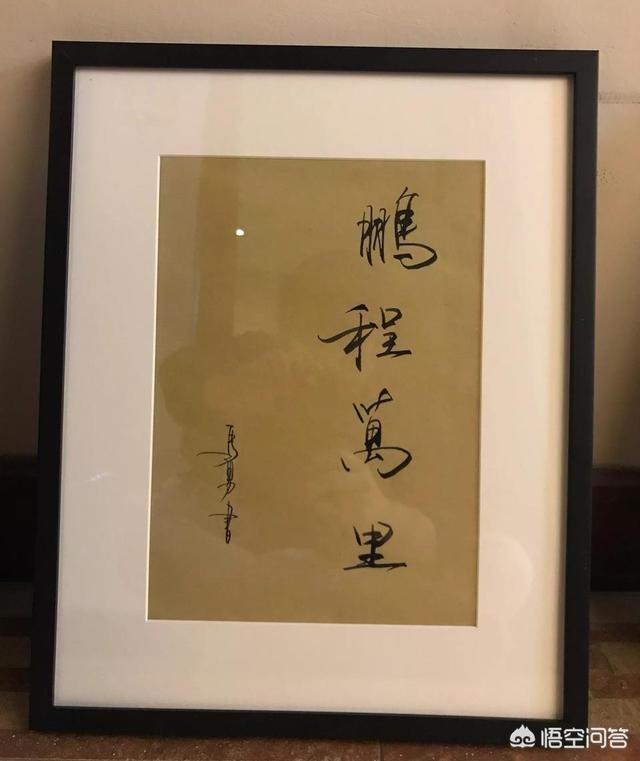 鵬程萬里
馬勇書
悟空问答